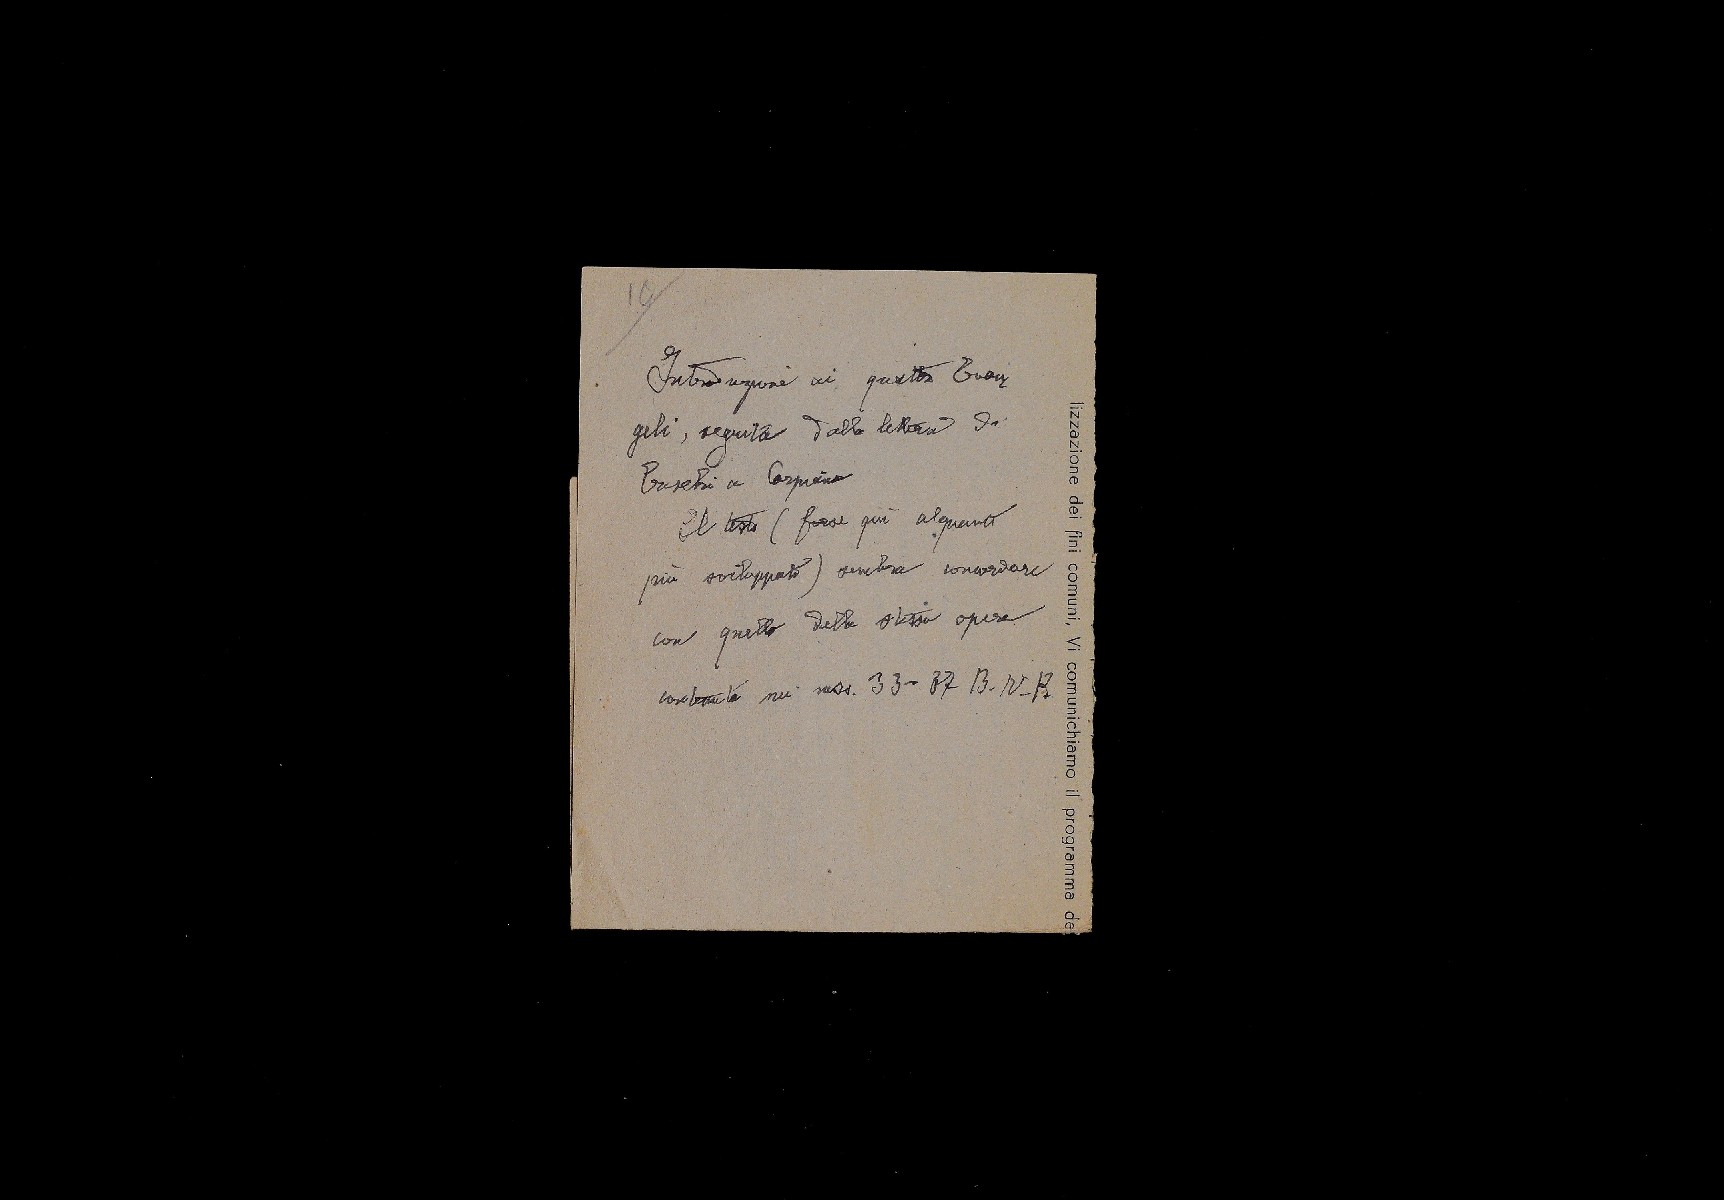 19
Introduzione ai quattro Evan
geli, seguita dalla lettera di
Eusebio a Carpiano
Il testo (forse qui alquanto
più sviluppato) sembra concordare
con quello della stessa opera
contenuta nei mss. 33-37 B.N.P.
lizzazione dei fini comuni, Vi comunichiamo il programma de